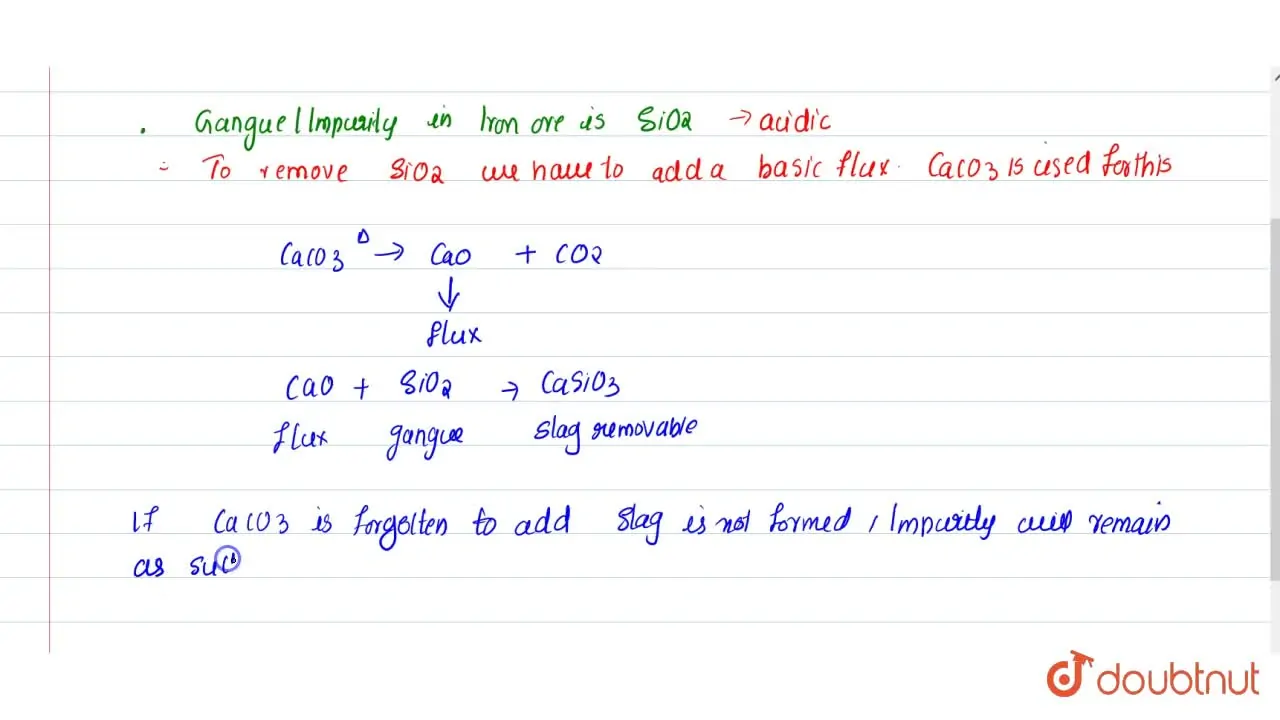 . Gangue/Impurity in Iron ore is SiO2 → acidic
∴ To remove SiO2 we have to add a basic flux. CaCO3 is used for this
CaCO3 Δ→ CaO + CO2
↓
flux
CaO + SiO2 → CaSiO3
flux gangue slag removable
If CaCO3 is forgotten to add slag is not formed, Impurity will remain
as such
doubtnut